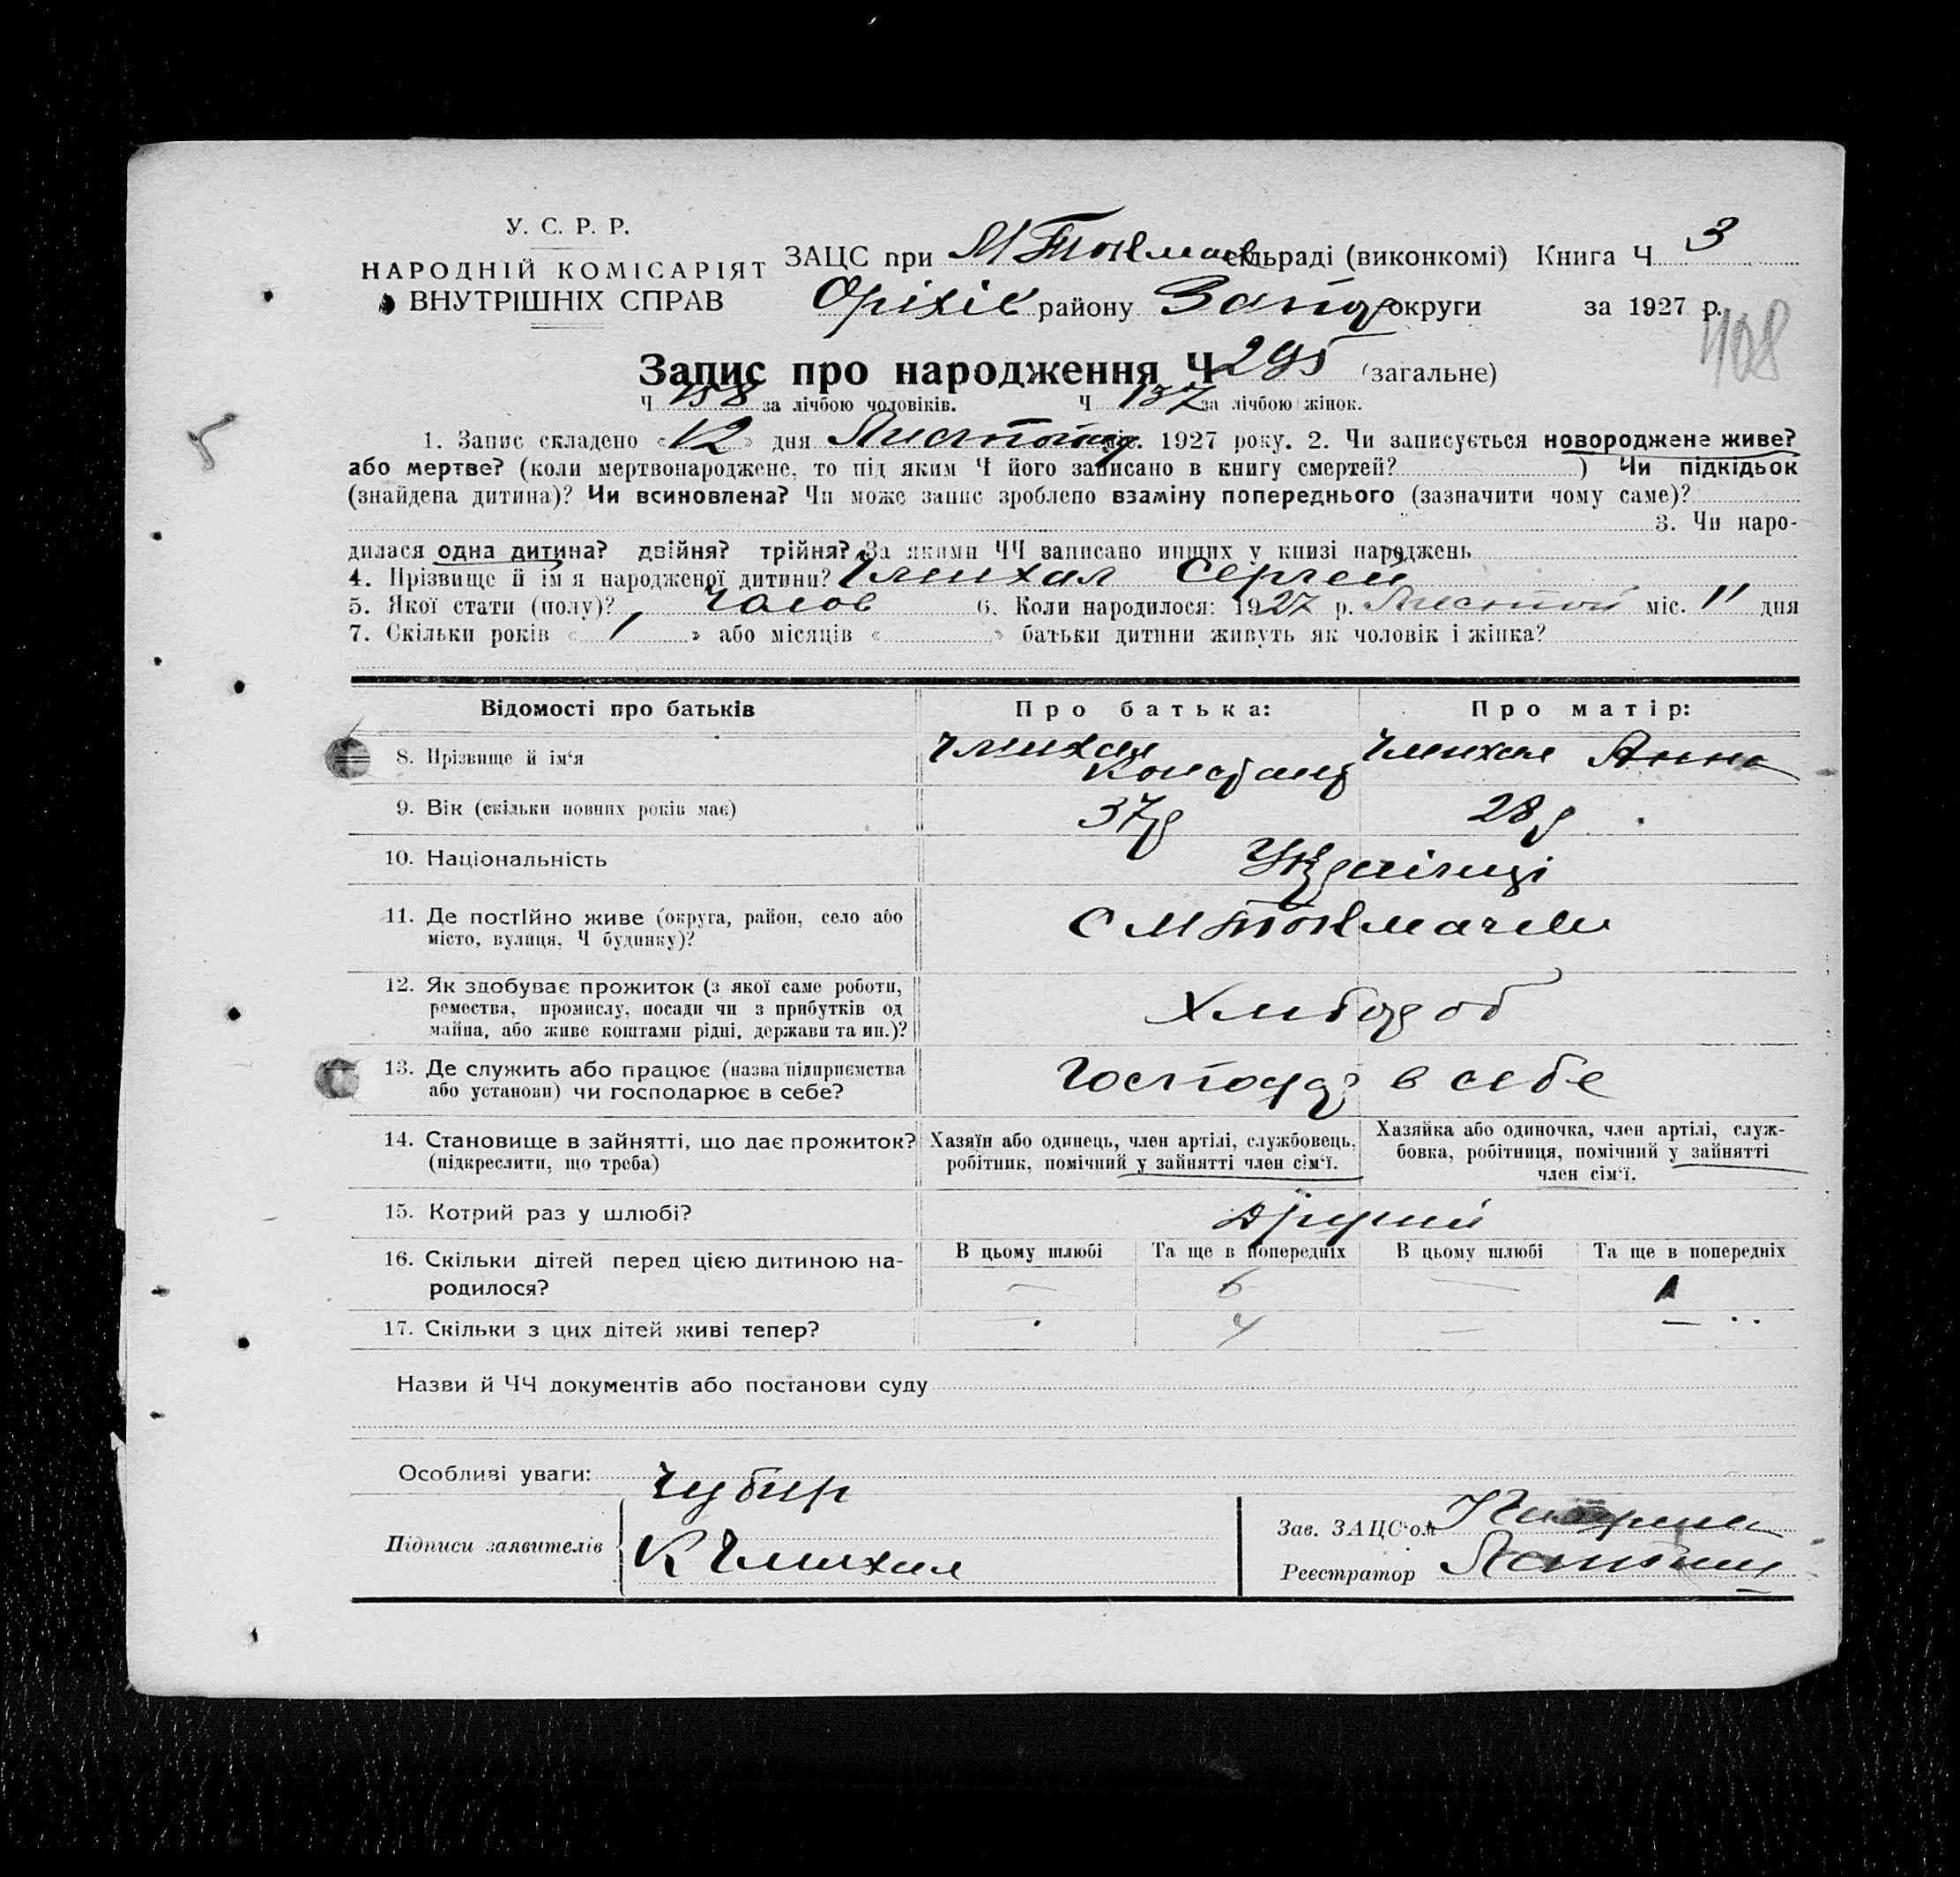 У. С. Р. Р.
НАРОДНІЙ КОМІСАРІЯТ
ВНУТРІШНІХ СПРАВ
ЗАЦС при М Токмач сільраді (виконкомі) Книга Ч 3
Оріхів району Запор округи за 1927 р.
408
Запис про народження Ч 295 (загальне)
Ч 158 за лічбою чоловіків. Ч 137 за лічбою жінок.
1. Запис складено «12» дня Листопад міс. 1927 року. 2. Чи записується новороджене живе?
або мертве? (коли мертвонароджене, то під яким Ч його записано в книгу смертей? ) Чи підкідьок
(знайдена дитина)? Чи всиновлена? Чи може запис зроблено взаміну попереднього (зазначити чому саме)?
3. Чи наро-
дилася одна дитина? двійня? трійня? За якими ЧЧ записано инших у книзі народжень
4. Прізвище й ім'я народженої дитини? Сергей
5. Якої стати (полу)? Чолов 6. Коли народилося: 1927 р. Листоп міс. 11 дня
7. Скільки років « 1 » або місяців « » батьки дитини живуть як чоловік і жінка?
Відомості про батьків Про батька: Про матір:
8. Прізвище й ім'я Анна
9. Вік (скільки повних років має) 37р 28р
10. Національність Українці
11. Де постійно живе (округа, район, село або
місто, вулиця, Ч будинку)?
С М Токмачки
12. Як здобуває прожиток (з якої саме роботи,
ремества, промислу, посади чи з прибутків од
майна, або живе коштами рідні, держави та ин.)?
Хлибороб
13. Де служить або працює (назва підприємства
або установи) чи господарює в себе?
Господар в себе
14. Становище в зайнятті, що дає прожиток?
(підкреслити, що треба)
Хазяїн або одинець, член артілі, службовець,
робітник, помічний у зайнятті член сім'ї.
Хазяйка або одиночка, член артілі, служ-
бовка, робітниця, помічний у зайнятті
член сім'ї.
15. Котрий раз у шлюбі? Другий
16. Скільки дітей перед цією дитиною на-
родилося?
В цьому шлюбі Та ще в попередніх В цьому шлюбі Та ще в попередніх
— 6 — 1
17. Скільки з цих дітей живі тепер? 4 — —
Назви й ЧЧ документів або постанови суду
Особливі уваги:
Підписи заявителів
Чубир
Зав. ЗАЦС'ом
Реєстратор